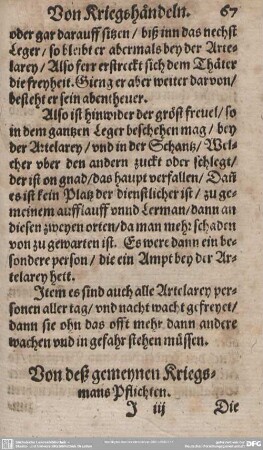 Von Kriegshändeln. 67
oder gar darauff sitzen / biß inn das nechst
Leger / so bleibt er abermals bey der Artes
larey / Also ferr erstreckt sich dem Thäter
die freyheit. Gieng er aber weiter darvon /
besteht er sein abentheuer.
Also ist hinwider der gröst freuel / so
in dem gantzen Leger beschehen mag / bey
der Artelarey / vnd in der Schantz / Wel-
cher vber den andern zuckt oder schlegt /
der ist on gnad / das haupt verfallen / Dañ
es ist kein Platz der dienstlicher ist / zu ge-
meinem aufflauff vnnd Lerman / dann an
diesen zweyen orten / da man mehr schaden
von zu gewarten ist. Es were dann ein be-
sondere person / die ein Ampt bey der Ar-
telarey hett.
Item es sind auch alle Artelarey per-
sonen aller tag / vnd nacht wacht gefreyet /
dann sie ohn das offt mehr dann andere
wachen vnd in gefahr stehen müssen.
Von deß gemeynen Kriegs-
mans Pflichten.
J iij Die